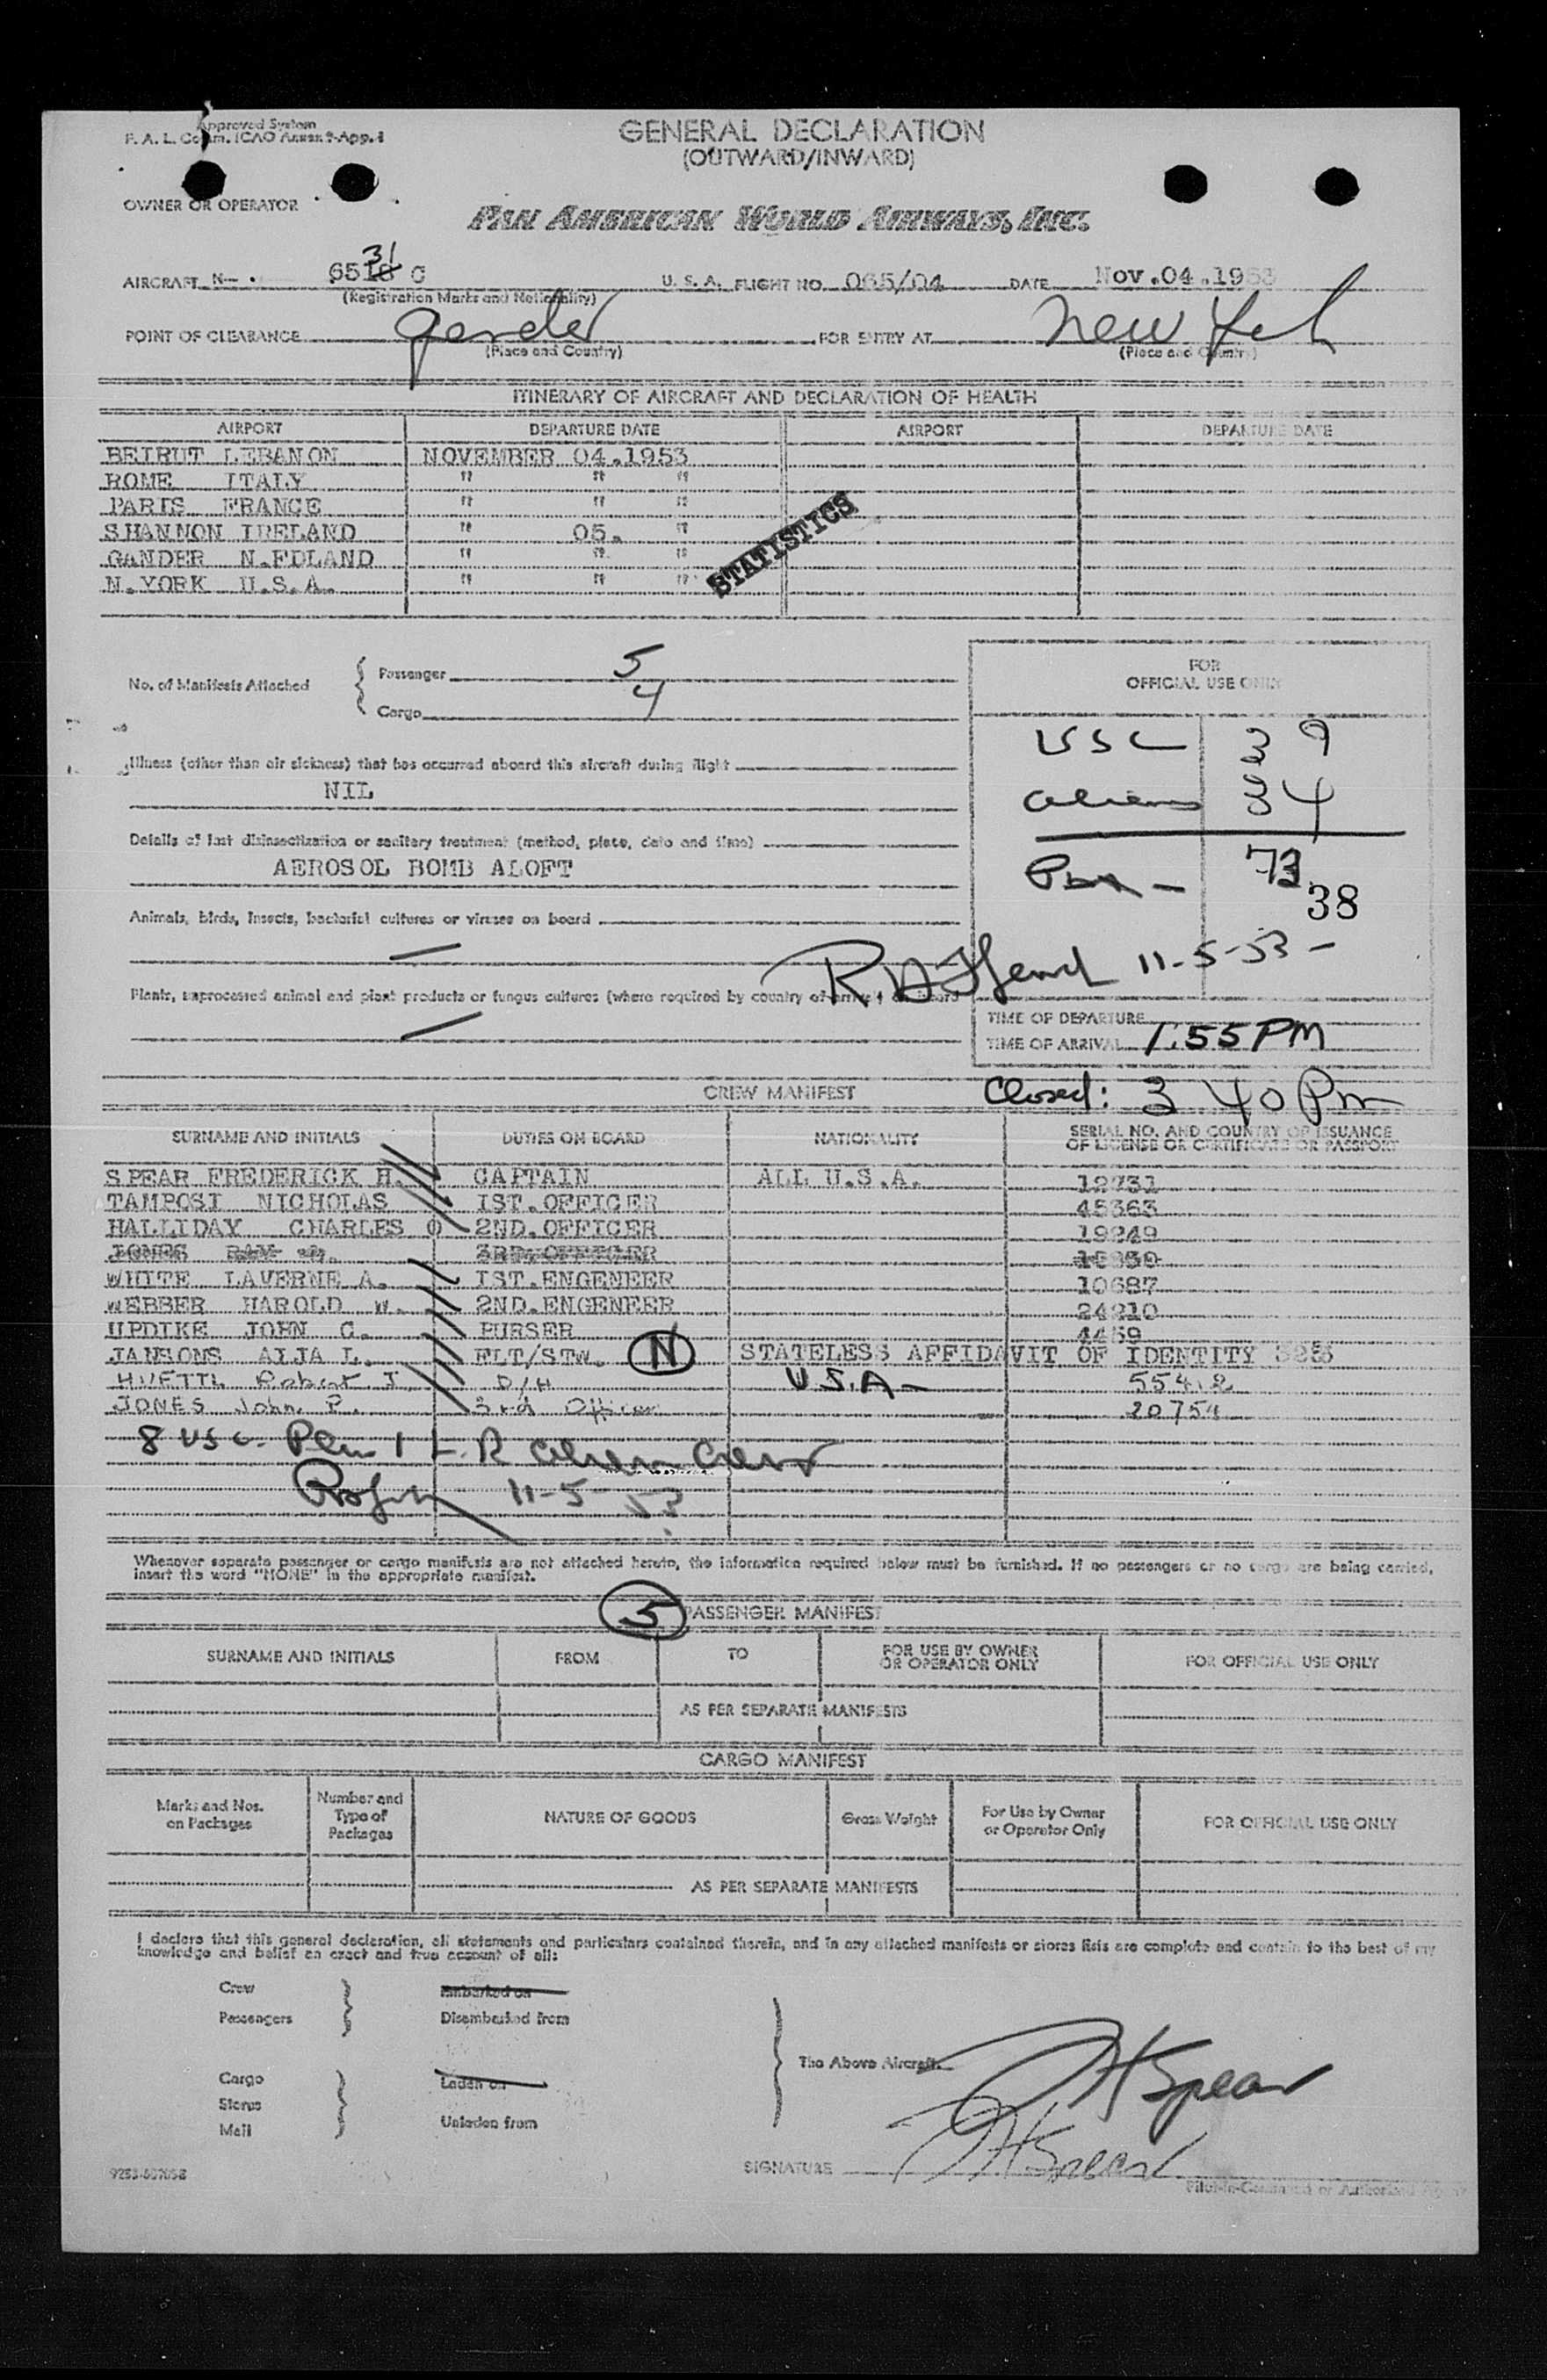 Approved System
F. A. L. Comm. ICAO Annex 9-App. 1
GENERAL DECLARATION
(OUTWARD/INWARD)
OWNER OR OPERATOR
PAN AMERICAN WORLD AIRWAYS, INC.
AIRCRAFT N- 6518 31 C U. S. A. FLIGHT NO. 065/04 DATE Nov.04.1953
(Registration Marks and Nationality)
POINT OF CLEARANCE Gander FOR ENTRY AT New York
(Place and Country) (Place and Country)
ITINERARY OF AIRCRAFT AND DECLARATION OF HEALTH
AIRPORT DEPARTURE DATE AIRPORT DEPARTURE DATE
BEIRUT LEBANON NOVEMBER 04.1953
ROME ITALY " " "
PARIS FRANCE " " "
SHANNON IRELAND " 05. "
GANDER N.FDLAND " " "
N.YORK U.S.A. " " "
STATISTICS
No. of Manifests Attached
Passenger 5
Cargo 4
FOR
OFFICIAL USE ONLY
USC 39
Aliens 34
73
38
Illness (other than air sickness) that has occurred aboard this aircraft during flight
NIL
Details of last disinsectization or sanitary treatment (method, place, date and time)
AEROSOL BOMB ALOFT
Animals, birds, insects, bacterial cultures or viruses on board
11-5-53
Plants, unprocessed animal and plant products or fungus cultures (where required by country of arrival) on board
TIME OF DEPARTURE
TIME OF ARRIVAL 1:55 PM
Closed: 3 40 Pm
CREW MANIFEST
SURNAME AND INITIALS DUTIES ON BOARD NATIONALITY SERIAL NO. AND COUNTRY OF ISSUANCE
OF LICENSE OR CERTIFICATE OR PASSPORT
SPEAR FREDERICK H. CAPTAIN ALL U.S.A. 12731
TAMPOSI NICHOLAS IST.OFFICER 45363
HALLIDAY CHARLES O 2ND.OFFICER 19249
JONES 3RD.OFFICER
WHITE LAVERNE A. IST.ENGENEER 10687
WEBBER HAROLD W. 2ND.ENGENEER 24210
UPDIKE JOHN C. PURSER 4459
JANSONS AIJA L. FLT/STW. N STATELESS AFFIDAVIT OF IDENTITY
HUETTL Robert J D/H U.S.A- 55412
JONES John P. 3rd Officer 20754
8 usc Plus 1 L.R alien Crew
11-5-53
Whenever separate passenger or cargo manifests are not attached hereto, the information required below must be furnished. If no passengers or no cargo are being carried,
insert the word "NONE" in the appropriate manifest.
5 PASSENGER MANIFEST
SURNAME AND INITIALS FROM TO FOR USE BY OWNER
OR OPERATOR ONLY FOR OFFICIAL USE ONLY
AS PER SEPARATE MANIFESTS
CARGO MANIFEST
Marks and Nos.
on Packages Number and
Type of
Packages NATURE OF GOODS Gross Weight For Use by Owner
or Operator Only FOR OFFICIAL USE ONLY
AS PER SEPARATE MANIFESTS
I declare that this general declaration, all statements and particulars contained therein, and in any attached manifests or stores lists are complete and contain to the best of my
knowledge and belief an exact and true account of all:
Crew Embarked on
Passengers Disembarked from
The Above Aircraft
Cargo Laden on
Stores
Mail Unladen from
FHSpear
SIGNATURE FHSpear
Pilot-in-Command or Authorized Agent